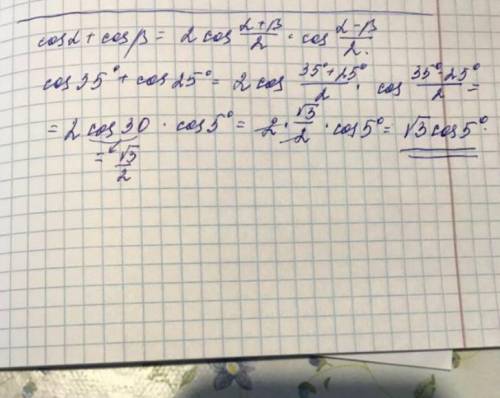 cosα + cosβ = 2 cos (α+β)/2 · cos (α−β)/2.
cos 35° + cos 25° = 2 cos (35°+25°)/2 · cos (35°−25°)/2 =
= 2 cos 30 · cos 5° = 2 · √3/2 · cos 5° = √3 cos 5°.
= √3/2